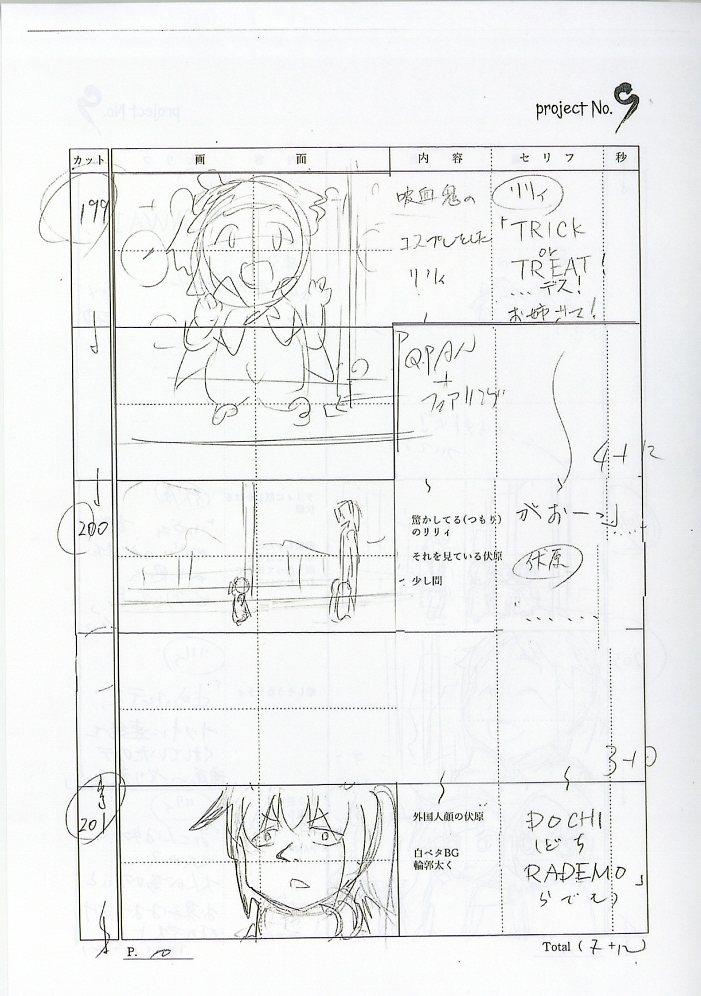 project No.9
カット 画面 内容 セリフ 秒
199
吸血鬼の
コスプレをした
リリィ
リリィ
「TRICK
or
TREAT!
...デス!
お姉さま!
Q.PAN
+
4+12
200
驚かしてる(つもり)
のリリィ
それを見ている伏原
少し間
がおーっ」
伏原
「......
3+0
201
外国人顔の伏原
白ベタBG
輪郭太く
DOCHI
(どち
RADEMO」
らでも)
P. 10
Total ( 7+12 )